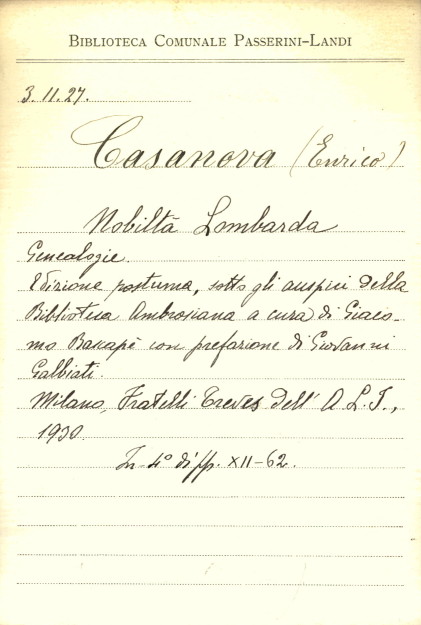 BIBLIOTECA COMUNALE PASSERINI-LANDI
3.11.27.
Casanova (Enrico)
Nobiltà Lombarda
Genealogie.
Edizione postuma, sotto gli auspici della
Biblioteca Ambrosiana a cura di Giaco-
mo Bascapè con prefazione di Giovanni
Galbiati.
Milano, Fratelli Treves dell' A. L. I.,
1930.
In-4° di pp. XII-62.